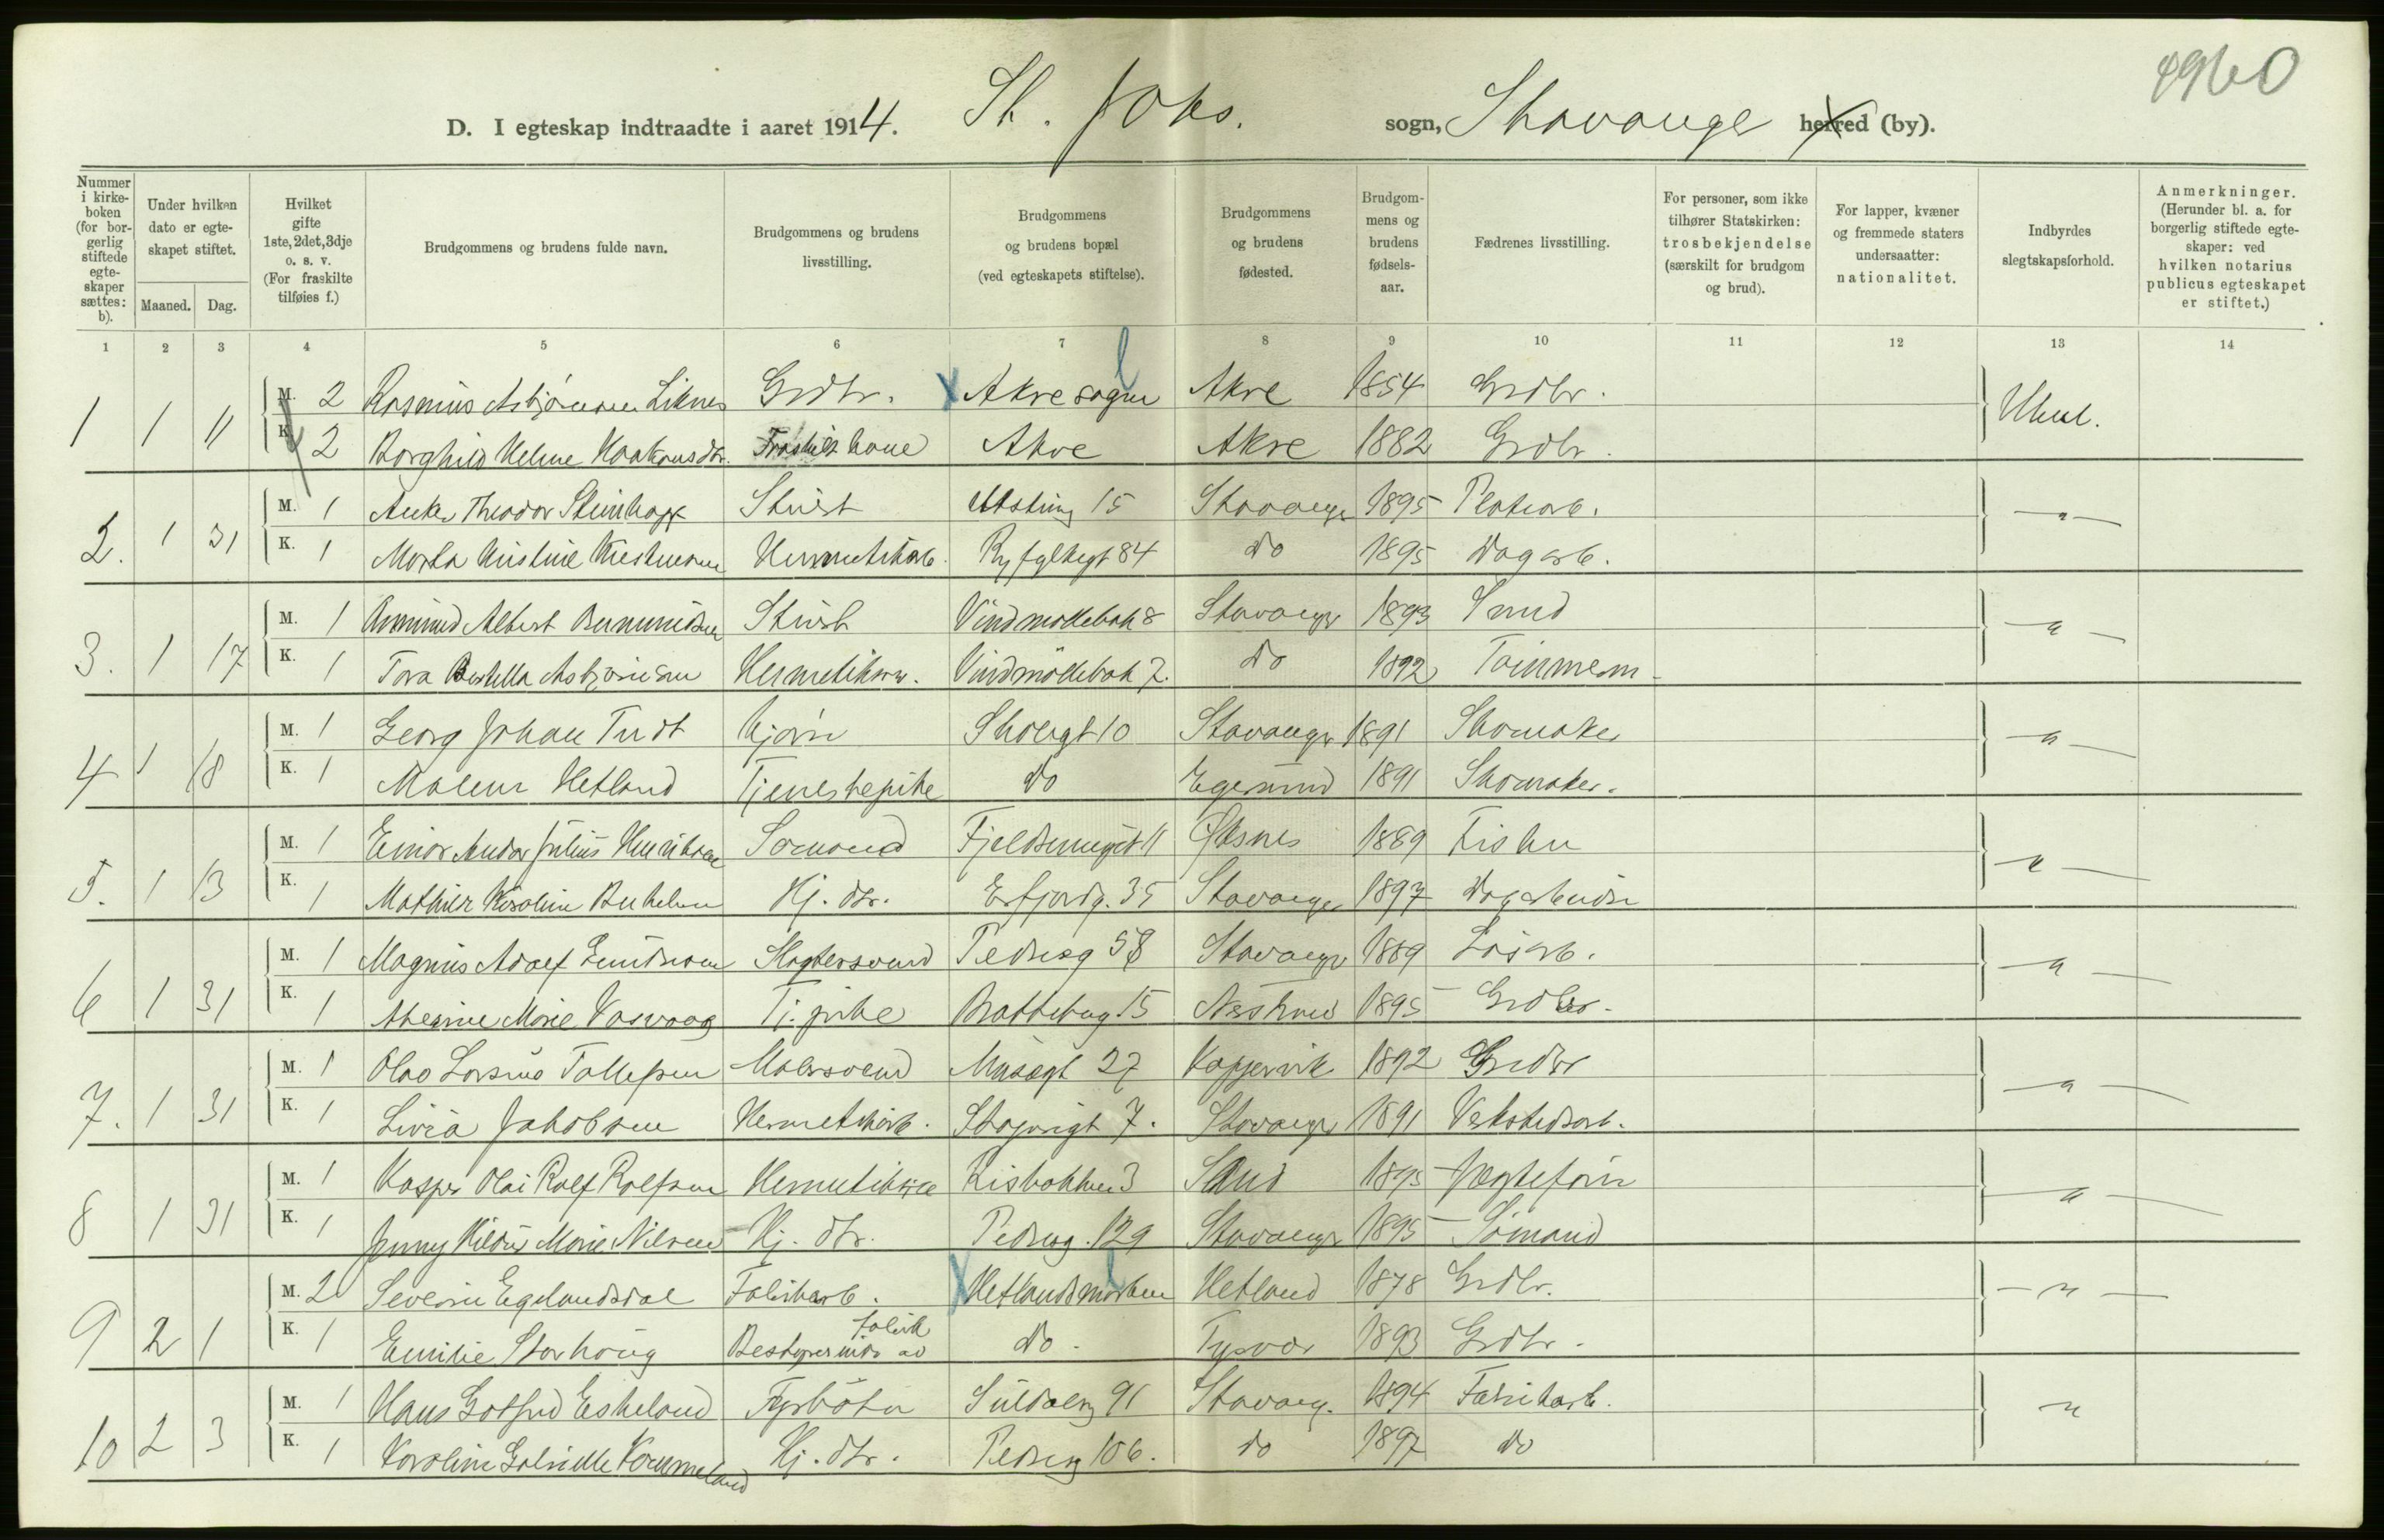 4960
D. I egteskap indtraadte i aaret 1914. St. Johs. sogn, Stavanger herred (by).
Nummer i kirkeboken (for borgerlig stiftede egteskaper sættes: b).
Under hvilken dato er egteskapet stiftet.
Maaned. Dag.
Hvilket gifte 1ste, 2det, 3dje o. s. v. (For fraskilte tilføies f.)
Brudgommens og brudens fulde navn.
Brudgommens og brudens livsstilling.
Brudgommens og brudens bopæl (ved egteskapets stiftelse).
Brudgommens og brudens fødested.
Brudgommens og brudens fødselsaar.
Fædrenes livsstilling.
For personer, som ikke tilhører Statskirken: trosbekjendelse (særskilt for brudgom og brud).
For lapper, kvæner og fremmede staters undersaatter: nationalitet.
Indbyrdes slegtskapsforhold.
Anmerkninger. (Herunder bl. a. for borgerlig stiftede egteskaper: ved hvilken notarius publicus egteskapet er stiftet.)
1 2 3 4 5 6 7 8 9 10 11 12 13 14
1 1 11 M. 2 Rasmus Asbjørnsen Liknes Grdbr. Akre sogn Akre 1854 Grdbr.
K. 2 Borghild Helene Haakonsdtr. Akre Akre 1882 Grdbr.
2. 1 31 M. 1 Theodor Steinkopf 15 Stavanger 1895
K. 1 Marta Kristine Hermetikarb. Ryfylkegt 84 do 1895 Dagarb.
3. 1 17 M. 1 Albert Vindmøllebak 8 Stavanger 1893 Smed
K. 1 Tora Bertella Asbjørnsen Hermetikarb. Vindmøllebak 7. do 1892 Tømmerm.
4 1 18 M. 1 Georg Johan Tudt Kjører 10 Stavanger 1891 Skomaker
K. 1 Malene Hetland Tjenestepike do Egersund 1891 Skomaker.
5. 1 13 M. 1 Einar Andor Julius Henriksen Sømand 11 Øksnes 1889 Fisker
K. 1 Mathilde Karoline Hj. dtr. Erfjordg. 35 Stavanger 1897 Dagarbeider
6 1 31 M. 1 Magnus Adolf Slagtersvend Pedersg 58 Stavanger 1889 Løsarb.
K. 1 Marie Vasvaag Tj. pike 15 1895 Grdbr.
7. 1 31 M. 1 Olav Tollefsen Malersvend Musegt 27 Kopervik 1892 Grdbr
K. 1 Livia Jakobsen Hermetikarb. 7. Stavanger 1891 Verkstedsarb.
8 1 31 M. 1 Kasper Olai Rolf Rolfsen Risbakken 3 Sand 1895 Jægtefører
K. 1 Jenny Marie Nilsen Hj. dtr. Pedersg. 129 Stavanger 1895 Sømand
9 2 1 M. 2 Severin Egelandsdal Fabrikarb. Hetlandsmarken Hetland 1878 Grdbr.
K. 1 Emilie Storhaug Bestyrerinde av fabrik do. Tysvær 1893 Grdbr.
10 2 3 M. 1 Hans Gotfred Eskeland Fyrbøter Suldalsg 91 Stavang. 1894 Fabrikarb.
K. 1 Karoline Gabrielle Hj. dtr. Pedersg 106. do 1897 do